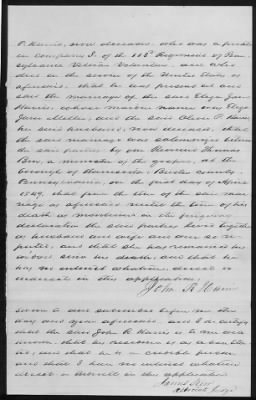 P. Harris, now deceased, who was a private
in Company F. of the 103d Regiment of Penn
sylvania Veteran Volunteers, and who
died in the service of the United States as
aforesaid. that he was present at and
saw the marriage of the said Eliza Jane
Harris, whose maiden name was Eliza
Jane and the said Oliver P. Harris
her said husband, now deceased, that
the said marriage was solemnized between
the said parties by Reverend Thomas
a minister of the gospel, at the
borough of Butler County,
Pennsylvania, on the first day of
1849, that from the time of the said mar
riage as aforesaid until the time of his
death as mentioned in the foregoing
declaration the said parties lived together
as husband and wife and were so re
puted, and that she has remained his
widow since his death, and that he
has no interest whatever direct or
indirect in this application;
John R. Harris
Sworn to and subscribed before me the
day and year aforesaid, and I do certify
that the said John R. Harris is to me well
known, that his residence is as above sta
ted, and that he is a credible person
and that I have no interest whatever
direct or indirect in this application
James Kerr
Associate Judge